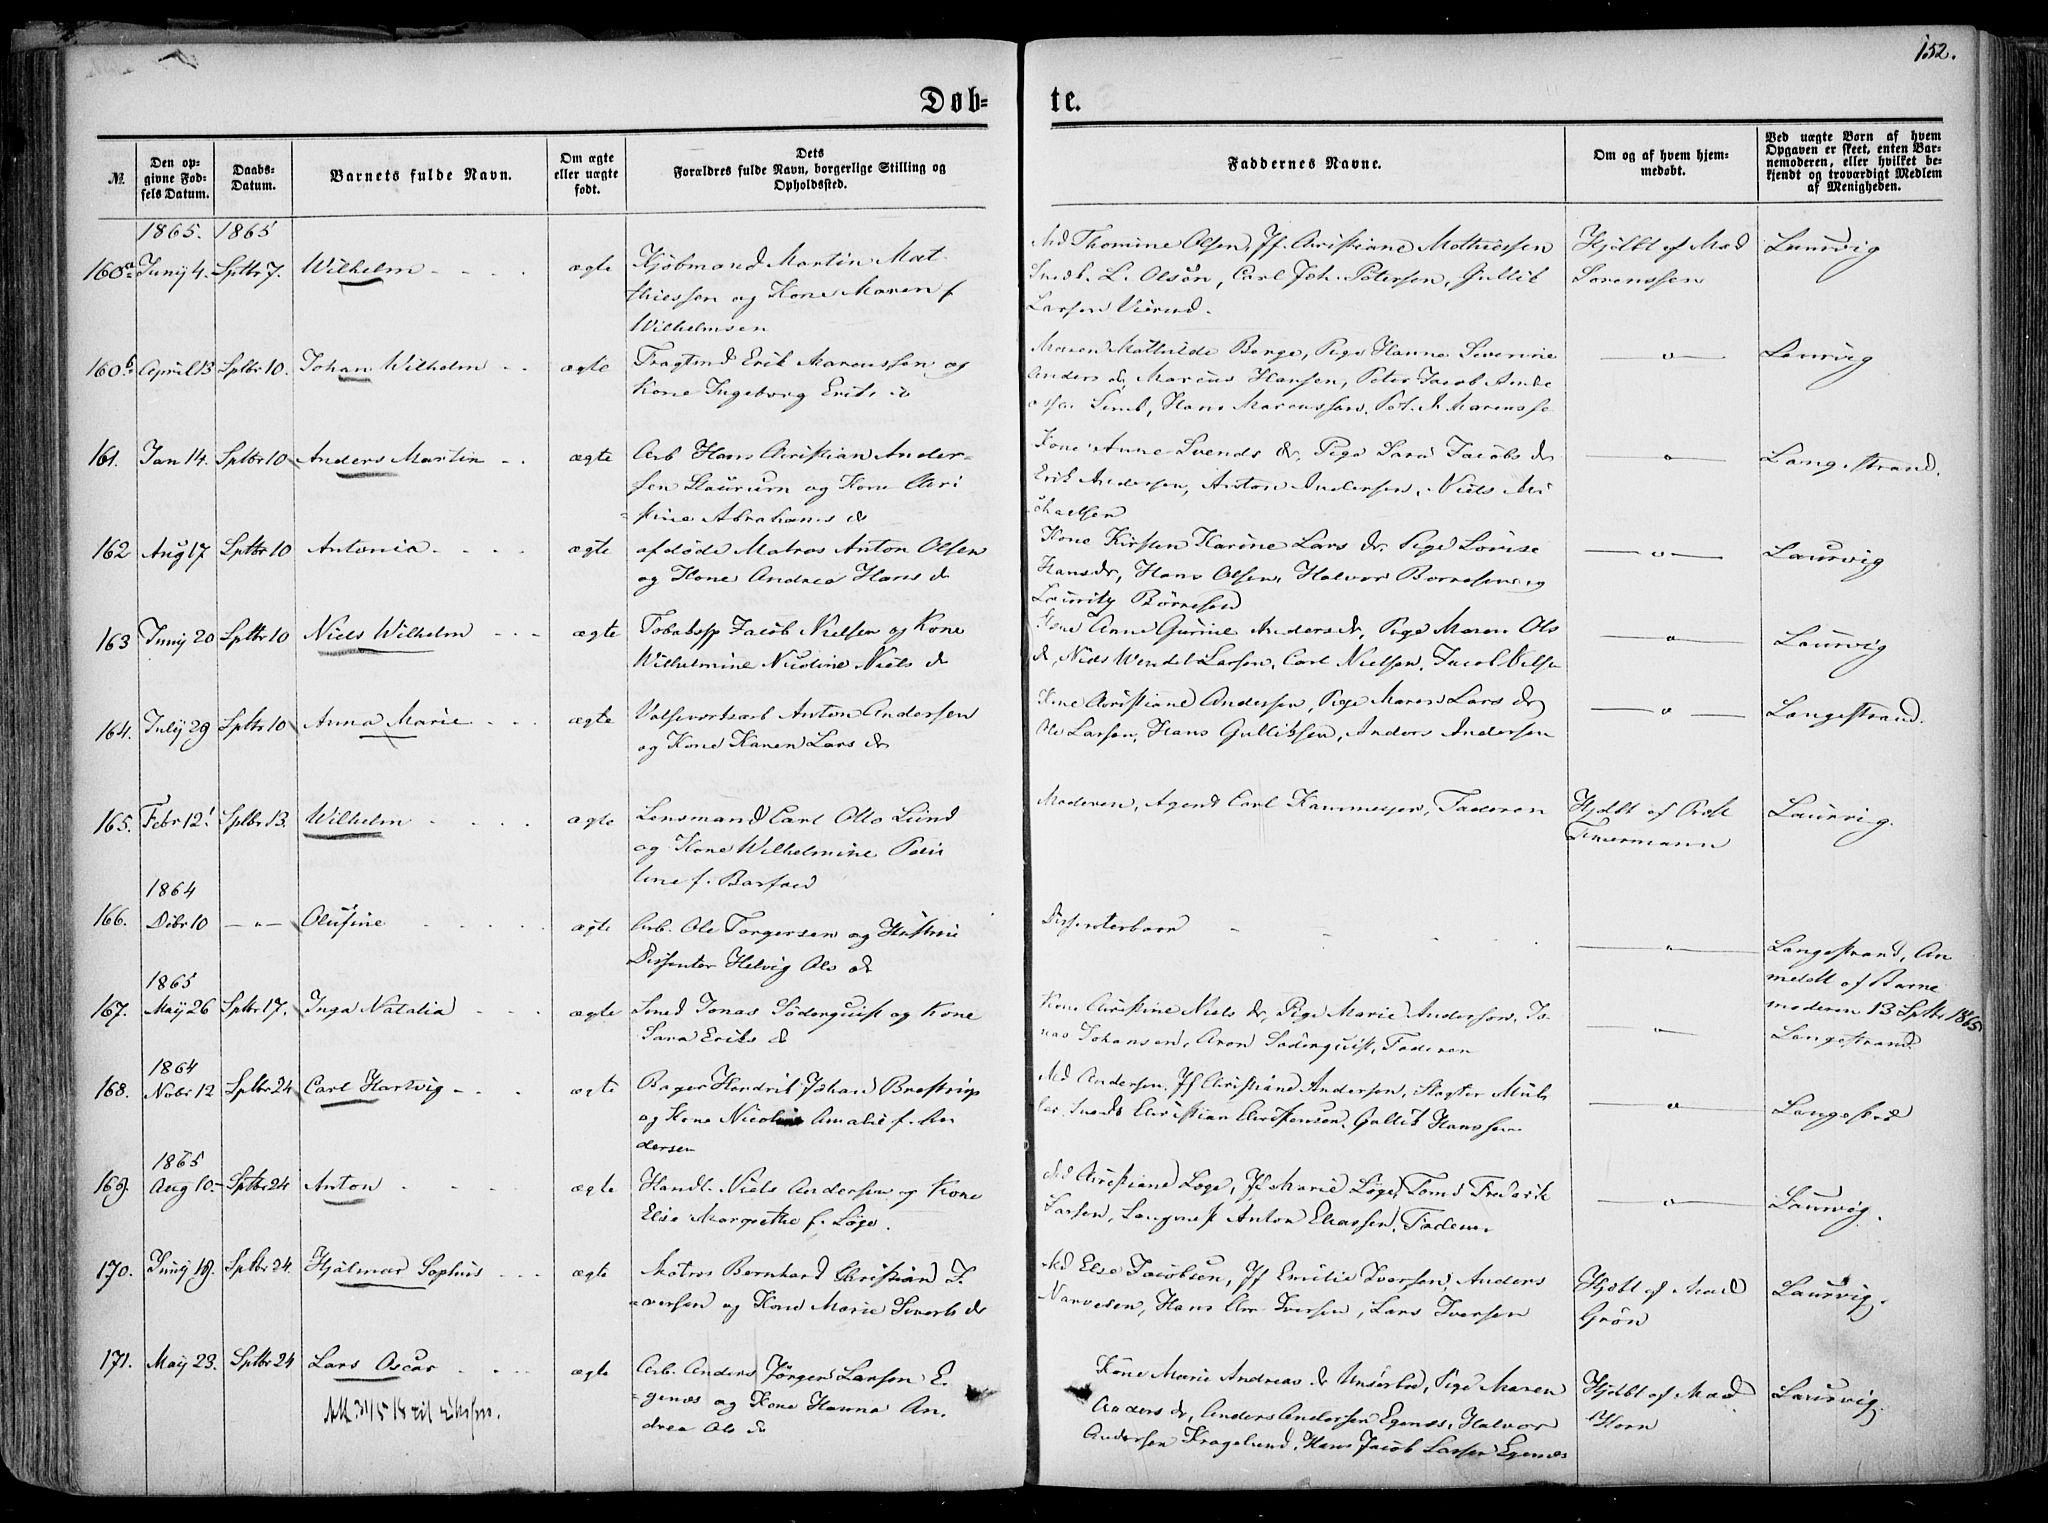 152.
Døb=
te.
№.
Den op=
givne Fød=
sels Datum.
Daabs=
Datum.
Barnets fulde Navn.
Om ægte
eller uægte
født.
Dets
Forældres fulde Navn, borgerlige Stilling og
Opholdssted.
Faddernes Navne.
Om og af hvem hjem=
medøbt.
Ved uægte Børn af hvem
Opgaven er skeet, enten Bar=
nemoderen, eller hvilket be=
kjendt og troværdigt Medlem
af Menigheden.
1865. 1865
160a Junij 4. Sptbr 7. Wilhelm ægte
Kjøbmand Martin Mat
thiessen og Kone Maren f.
Wilhelmsen
Md Thomine Olsen, Jf. Christiane Mathiessen
L. Olsøn, Carl Joh. Petersen, Gullik
Larsen
Hjdbt af Mad
Sørenssen
Laurvig
160b April 13 Sptbr 10. Johan Wilhelm ægte
Fragtmd Erik Marcussen og
Kone Ingeborg Eriks d
Maren Mathilde Berge, Pige Hanne Severine
Anders d, Marcus Hansen, Peter Jacob
Hans Marcussen,
— " — Laurvig
161. Jan 14. Sptbr 10 Anders Martin ægte
Arb Hans Christian Ander=
sen Staurum og Kone Chri
=stine Abrahams d
Kone Anne Svends dr, Pige Sara Jacobs dr
Erik Andersen, Anton Andersen, Niels Mi
chaelsen
— " — Langestrand.
162 Aug 17 Sptbr 10 Antonia ægte
afdøde Matros Anton Olsen
og Kone Andrea Hans d
Kone Kirsten Karine Lars dr. Pige Lovise
Hansdr, Hans Olsen, Halvor Børresen og
Lauritz Børresen
— " — Laurvig
163 Junij 20 Sptbr 10 Niels Wilhelm ægte
Tobaksp Jacob Nielsen og Kone
Wilhelmine Nicoline Niels d
Kone Anne Gurine Anders dr, Pige Maren Ols
d, Niels Wendel Larsen, Carl Nielsen, Jacob
— " — Laurvig
164. Julij 29 Sptbr 10 Anna Marie ægte
Valseverksarb Anton Andersen
og Kone Karen Lars dr
Kone Christiane Andersen, Pige Maren Lars dr
Ole Larsen, Hans Gulliksen, Anders Andersen
— " — Langestrand.
165. Febr 12. Sptbr 13. Wilhelm ægte
Lensmand Carl Otto Lund
og Kone Wilhelmine
f.
Moderen, Agent Carl Kammeyer, Faderen
Hjdbt af
Laurvig.
1864
166. Dcbr 10 — " — Olufine ægte
Arb. Ole Torgersen og Hustrue
Dissenter Helvig Ols dr
Dissenterbarn
— " — Langestrand, An
meldt af Barne
moderen 13 Sptbr 1865
1865
167. May 26 Sptbr 17. Inga Natalia ægte
Smed Jonas Söderquist og Kone
Sara Eriks d
Kone Christine Niels dr, Pige Marie Andersen, Jo
nas Johansen, Aron Söderquist, Faderen
— " — Langestrand.
1864
168. Nvbr 12 Sptbr 24 Carl Hartvig ægte
Bager Hendrik Johan Brestrup
og Kone Nicoline Amalie f. An
dersen
Md Andersen, Jf Christiane Andersen, Slagter Mül
ler, Christian Christensen, Gullik Hanssen
— " — Langestrd
1865
169. Aug 10. Sptbr 24 Anton ægte
Handl. Niels Andersen og Kone
Elise Margrethe f. Løge.
Md Christiane Løge, Jf Marie Løge, Fredrik
Larsen, Anton Eliassen, Faderen
— " — Laurvig.
170. Junij 19. Sptbr 24. Hjalmar Sophus ægte
Matros Bernhard Christian I=
=versen og Kone Marie Siverts dr
Md Else Jacobsen, Jf Emilie Iversen, Anders
Narvesen, Hans Chr Iversen, Lars Iversen
Hjdbt af Mad
Grøn
Laurvig.
171. May 23. Sptbr 24 Lars Oscar ægte
Arb. Anders Jörgen Larsen E=
=genæs og Kone Hanna An=
drea Ols d
Kone Marie Andreas dr Pige Maren
Anders dr, Anders Andersen Egenæs, Halvor
Andersen Kragelund, Hans Jacob Larsen Egenæs
Hjdbt af Mad
Horn
Laurvig.